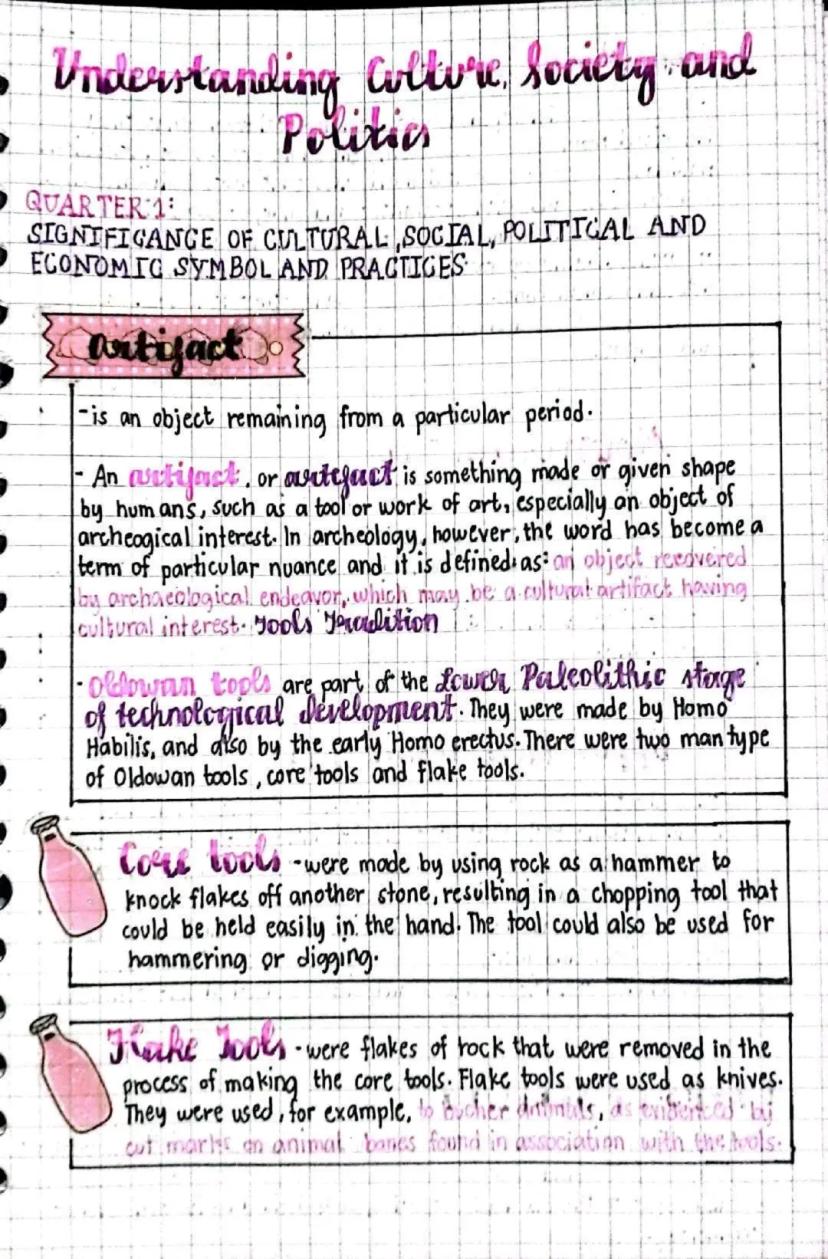 Understanding Culture, Society and
Politics
QUARTER 1:
SIGNIFICANCE OF CULTURAL, SOCIAL, POLITICAL AND
ECONOMIC SYMBOL AND PRACTICES
artifact
-is an object remaining from a particular period.
- An artifact, or artefact is something made or given shape
by humans, such as a tool or work of art, especially an object of
archeogical interest. In archeology, however, the word has become a
term of particular nuance and it is defined as: an object recovered
by archaeological endeavor, which may be a cultural artifact having
cultural interest. Tools Tradition
· Oldowan tools are part of the Lower Paleolithic stage
of technological development. They were made by Homo
Habilis, and also by the early Homo erectus. There were two man type
of Oldowan tools, core tools and flake tools.
Core tools -were made by using rock as a hammer to
knock flakes off another stone, resulting in a chopping tool that
could be held easily in the hand. The tool could also be used for
hammering or digging.
Flake Tools -were flakes of rock that were removed in the
process of making the core tools. Flake tools were used as knives.
They were used, for example, to bucher animals, as by
cut marks on animal bones found in association with the tools.